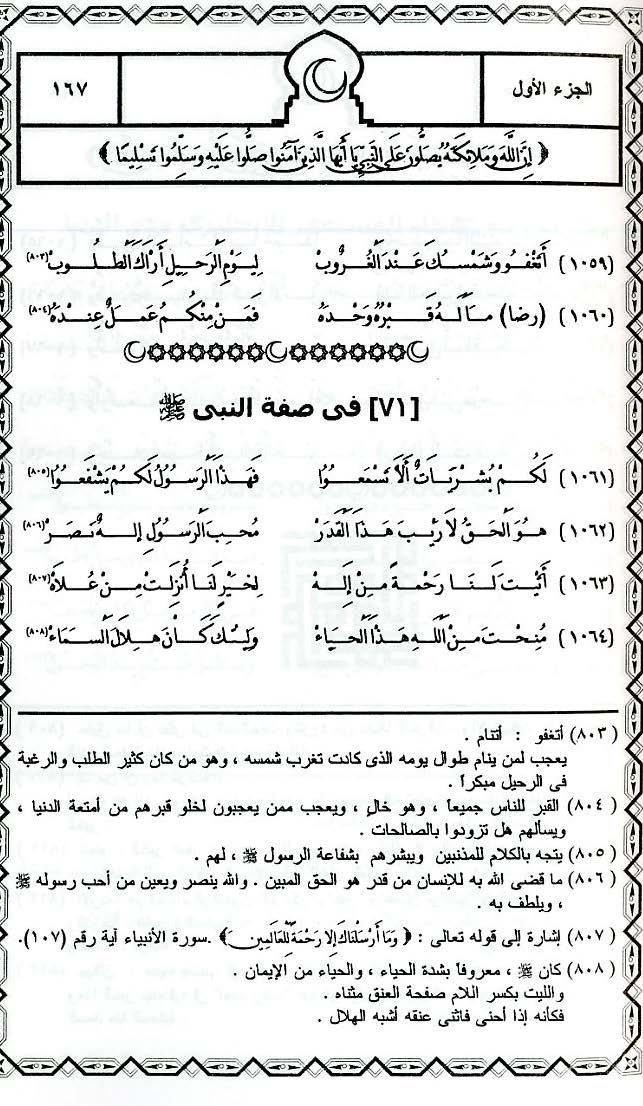 الجزء الأول
١٦٧
﴿ إِنَّ اللَّهَ وَمَلَائِكَتَهُ يُصَلُّونَ عَلَى النَّبِيِّ يَا أَيُّهَا الَّذِينَ آمَنُوا صَلُّوا عَلَيْهِ وَسَلِّمُوا تَسْلِيمًا ﴾
(١٠٥٩) أَتَغْفُو وَشَمْسُكَ عَنْدَ الْغُرُوبْ لِيَوْمِ الرَحِيلِ أَرَاكَ الطَّلُوبْ (٨٠٣)
(١٠٦٠) (رضا) مَا لَهُ قَبْرُهُ وَحْدَهُ فَمَن مِنْكُم عَمَلٌ عِنْدَهُ (٨٠٤)
[٧١] فى صفة النبى ﷺ
(١٠٦١) لَكُمْ بُشْرَيَاتٌ أَلَا تَسْمَعُوا فَهَذَا الرَسُولُ لَكُمْ يَشْفَعُوا (٨٠٥)
(١٠٦٢) هُوَ الْحَقُّ لَا رَيْبَ هَذَا الْقَدَرْ مُحِبَ الرَسُولِ إِلهٌ نَصَرْ (٨٠٦)
(١٠٦٣) أَتَيْتَ لَنَا رَحْمَةً مِنْ إِلهْ لِخَيْرٍ لَنَا أُنْزِلَتْ مِنْ عُلَاهْ (٨٠٧)
(١٠٦٤) مُنِحْتَ مِنَ اللَهِ هَذَا الحَيَاءْ وَلِيتُكَ كَانَ هِلَالَ السَمَاءْ (٨٠٨)
(٨٠٣) أتغفو : أتنام .
يعجب لمن ينام طوال يومه الذى كادت تغرب شمسه ، وهو من كان كثير الطلب والرغبة
فى الرحيل مبكراً .
(٨٠٤) القبر للناس جميعاً ، وهو خالٍ ، ويعجب ممن يعجبون لخلو قبرهم من أمتعة الدنيا ،
ويسألهم هل تزودوا بالصالحات .
(٨٠٥) يتجه بالكلام للمذنبين ويبشرهم بشفاعة الرسول ﷺ ، لهم .
(٨٠٦) ما قضى الله به للإنسان من قدر هو الحق المبين . والله ينصر ويعين من أحب رسوله ﷺ
، ويلطف به .
(٨٠٧) إشارة إلى قوله تعالى : ﴿ وَمَا أَرْسَلْنَاكَ إِلَّا رَحْمَةً لِّلْعَالَمِينَ ﴾ .سورة الأنبياء آية رقم (١٠٧).
(٨٠٨) كان ﷺ ، معروفاً بشدة الحياء ، والحياء من الإيمان .
والليت بكسر اللام صفحة العنق مثناه .
فكأنه إذا أحنى فاثنى عنقه أشبه الهلال .